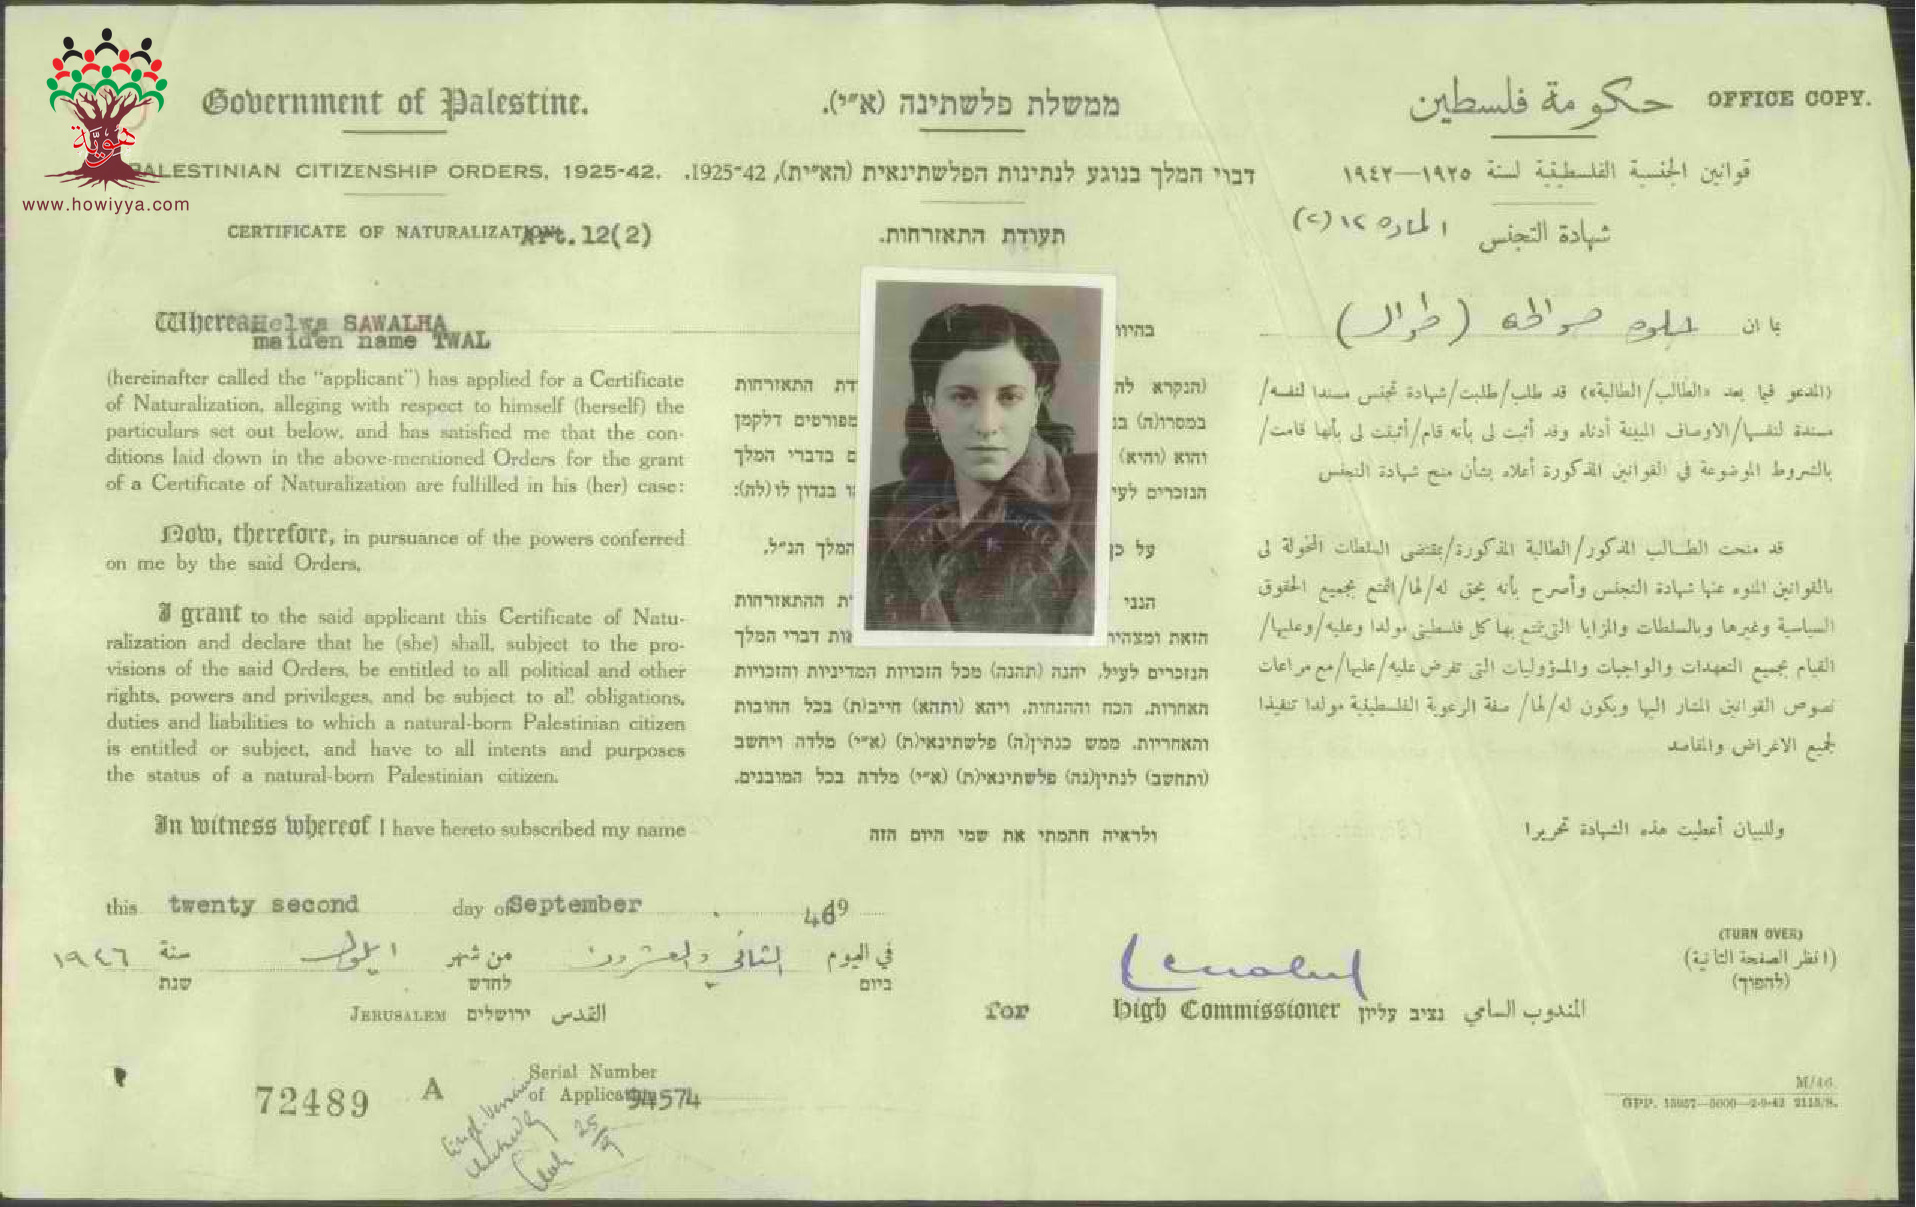 هويّة
www.howiyya.com
Government of Palestine.
PALESTINIAN CITIZENSHIP ORDERS, 1925-42.
CERTIFICATE OF NATURALIZATION Art.12(2)
Whereas Helwa SAWALHA
maiden name TWAL
(hereinafter called the "applicant") has applied for a Certificate
of Naturalization, alleging with respect to himself (herself) the
particulars set out below, and has satisfied me that the con-
ditions laid down in the above-mentioned Orders for the grant
of a Certificate of Naturalization are fulfilled in his (her) case:
Now, therefore, in pursuance of the powers conferred
on me by the said Orders,
I grant to the said applicant this Certificate of Natu-
ralization and declare that he (she) shall, subject to the pro-
visions of the said Orders, be entitled to all political and other
rights, powers and privileges, and be subject to all obligations,
duties and liabilities to which a natural-born Palestinian citizen
is entitled or subject, and have to all intents and purposes
the status of a natural-born Palestinian citizen.
In witness whereof I have hereto subscribed my name
ממשלת פלשתינה (א״י).
דברי המלך בנוגע לנתינות הפלשתינאית (הא״ית), 1925-42.
תעודת התאזרחות.
בהיות
(הנקרא לה
דת התאזרחות
במסרו(ה) בנ
מפורטים דלקמן
והוא (והיא)
ם בדברי המלך
הנזכרים לעי
ו בנדון לו(לה):
על כן
המלך הנ״ל.
הנני
ת ההתאזרחות
הזאת ומצהיר
אות דברי המלך
הנזכרים לעיל, יהנה (תהנה) מכל הזכויות המדיניות והזכויות
האחרות, הכח וההנחות, ויהא (ותהא) חייב(ת) בכל החובות
והאחריות, ממש כנתין(ה) פלשתינאי(ת) (א״י) מלדה ויחשב
(ותחשב) לנתין(נה) פלשתינאי(ת) (א״י) מלדה בכל המובנים.
ולראיה חתמתי את שמי היום הזה
حكومة فلسطين
OFFICE COPY.
قوانين الجنسية الفلسطينية لسنة ١٩٢٥—١٩٤٢
شهادة التجنس المادة ١٢ (٢)
بما ان حلوه صوالحه (طوال)
(المدعو فيما بعد «الطالب/الطالبة») قد طلب/طلبت/شهادة تجنس مسندا لنفسه/
مسندة لنفسها/الاوصاف المبينة أدناه وقد أثبت لي بأنه قام/أثبتت لي بأنها قامت/
بالشروط الموضوعة في القوانين المذكورة أعلاه بشأن منح شهادة التجنس
قد منحت الطالب المذكور/الطالبة المذكورة/بمقتضى السلطات المخولة لي
بالقوانين المنوه عنها شهادة التجنس وأصرح بأنه يحق له/لها/التمتع بجميع الحقوق
السياسية وغيرها وبالسلطات والمزايا التي يتمتع بها كل فلسطيني مولدا وعليه/وعليها/
القيام بجميع التعهدات والواجبات والمسؤوليات التي تفرض عليه/عليها/مع مراعات
نصوص القوانين المشار اليها ويكون له/لها/ صفة الرعوية الفلسطينية مولدا تنفيذا
لجميع الاغراض والمقاصد
وللبيان أعطيت هذه الشهادة تحريرا
this twenty second day of September 19 46
في اليوم الثاني والعشرون من شهر ايلول سنة ١٩٤٦
ביום לחדש שנת
JERUSALEM ירושלים القدس
for High Commissioner נציב עליון المندوب السامي
(TURN OVER)
(انظر الصفحة الثانية)
(להפוך)
72489 A
Serial Number
of Application 54574
25/9
M/46.
GPP. 15957—5000—2-9-42 2115/S.